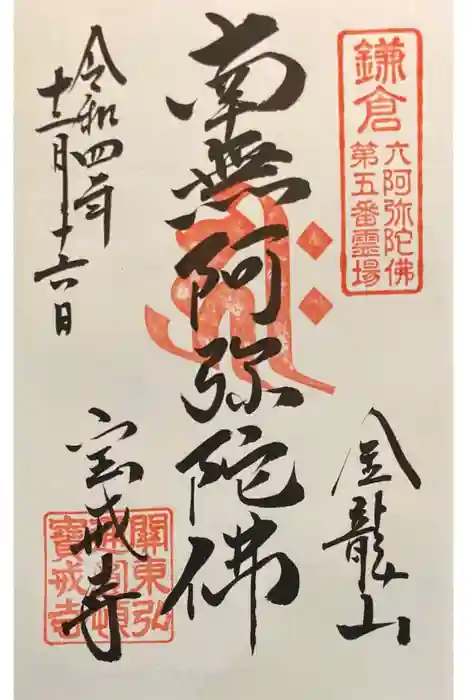 鎌倉
六阿弥陀佛
第五番霊場
金龍山
南無阿弥陀佛
令和四年
十二月十六日
宝戒寺
關東弘
通圓頓
寶戒寺